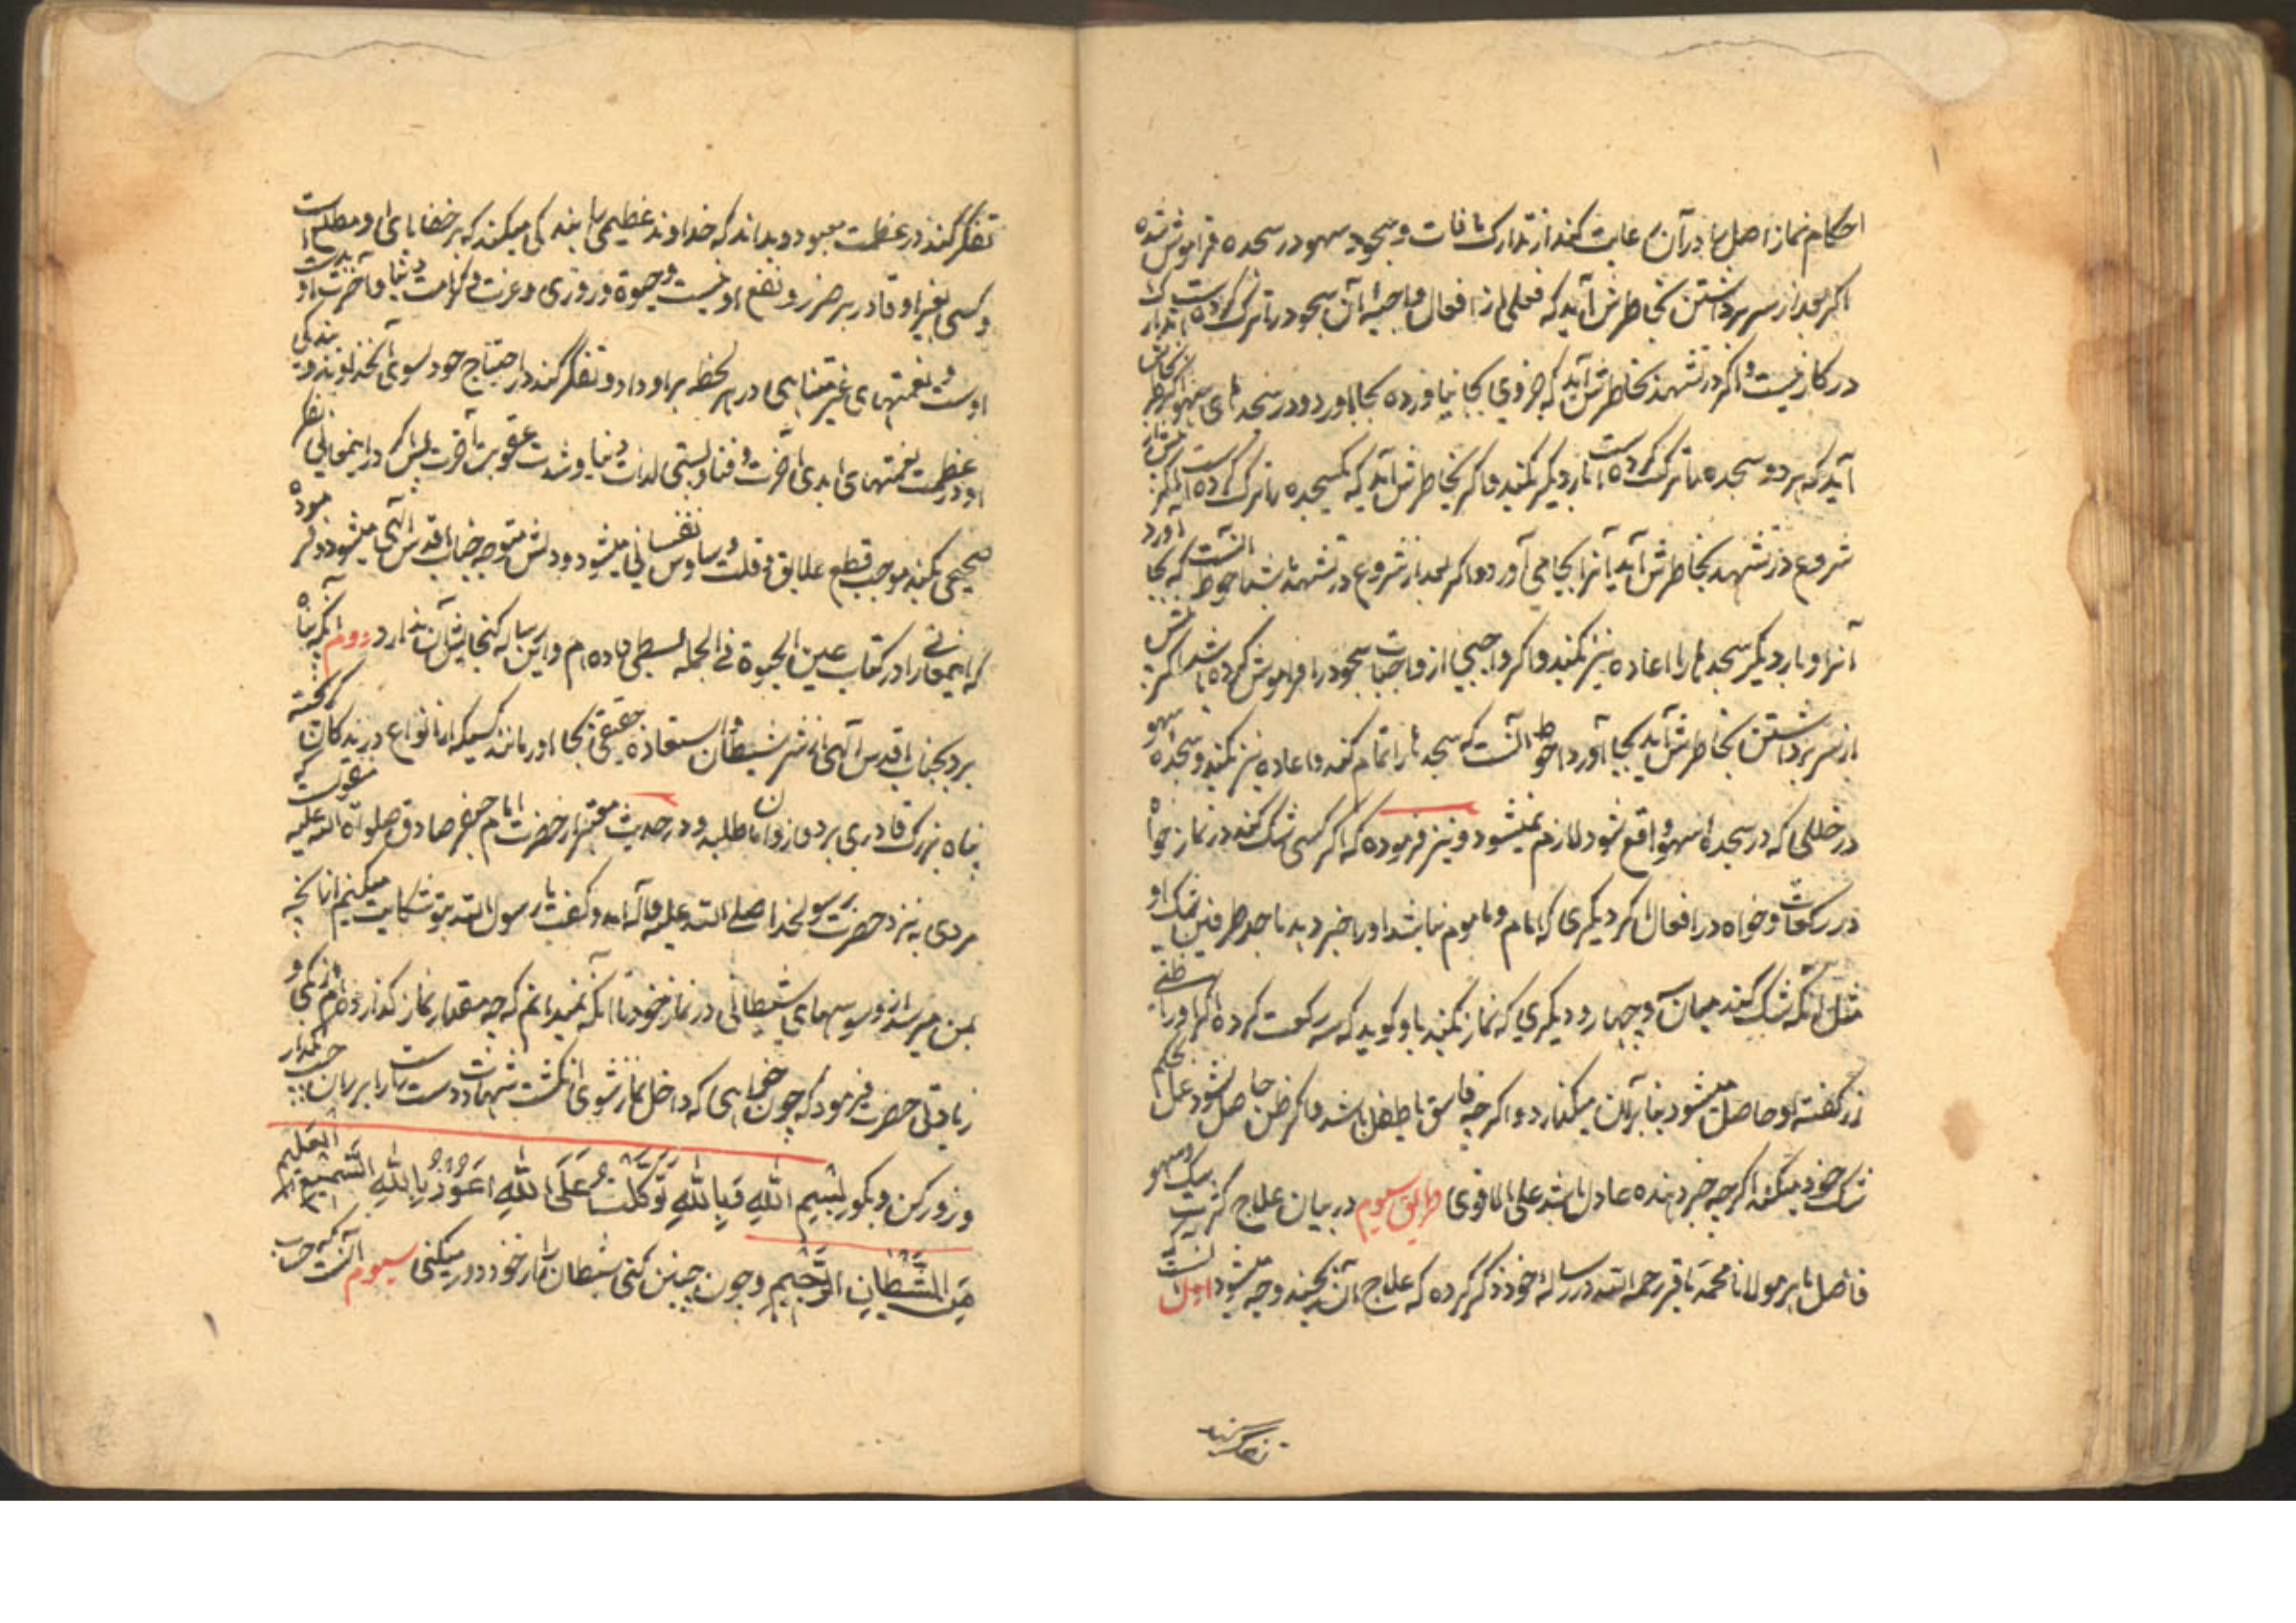 احکام نماز اصل را در آن رعایت کند از تدارک مافات و سجود سهو در سجده فراموش شده
اکر بعد از سر برداشتن بخاطرش آید که فعلی از افعال واجبه آن سجود را ترک کرده است تدارک
در کار نیست و اکر در تشهد بخاطرش آید که جزوی بجا نیاورده بجا آورد و در سجدهای سهو اکر بخاطرش
آید که هر دو سجده را ترک کرده است بار دیکر بکند و اکر بخاطرش آید که یکسجده را ترک کرده است اکر پیش از
شروع در تشهد بخاطرش آید آنرا بجا می آورد و اکر بعد از شروع در تشهد باشد احوط آنست که بجا آورد
آنرا و بار دیکر سجدها را اعاده نیز بکند و اکر واجبی از واجبات سجود را فراموش کرده باشد اکر پیش
از سر برداشتن بخاطرش آید بجا آورد و احوط آنست که سجدها را تمام کند و اعاده نیز بکند و سجده سهو
در خللی که در سجده سهو واقع شود لازم نمیشود و نیز فرموده که اکر کسی شک کند در نماز خواه
در رکعات و خواه در افعال اکر دیکری که امام و ماموم نباشد او را خبر دهد باحد طرفین شک او
مثل آنکه شک کند میان سه و چهار و دیکری که نماز نکند باو کوید که سه رکعت کرده اکر او را ظنی
از کفته او حاصل میشود بنا بر آن میکذارد و اکرچه فاسق یا طفل باشد و اکر ظن حاصل نشود عمل بحکم
شک خود میکند اکرچه خبر دهنده عادل باشد علی الاقوی طریق سیوم در بیان علاج کثرت شک و سهو
فاضل ماهر مولانا محمد باقر رحمه الله در رساله خود ذکر کرده که علاج آن بچند وجه میشود اول آنست که
تفکر کند
تفکر کند در عظمت معبود و بداند که خداوند عظیمی را بندکی میکند که بر خفایای او مطلع است
و کسی بغیر او قادر بر ضرر و نفع او نیست و حیوة و روزی و عزت و کرامت دنیا و آخرت او بدست
اوست و نعمتهای غیر متناهی در هر لحظه بر او دارد و تفکر کند در احتیاج خود بسوی آنخداوند و بندکی
او و در عظمت نعمتهای ابدی آخرت و فنا و پستی لذات دنیا و شدت عقوبت آخرت پس اکر در اینمعانی تفکر
صحیحی بکند موجب قطع علایق و قلت وساوس نفسانی میشود و دلش متوجه جناب اقدس الهی میشود و فرموده
که اینمعانی را در کتاب عین الحیوة فی الجمله بسطی داده ام و این رساله کنجایش آن ندارد دویم آنکه پناه
برد بجناب اقدس الهی از شر شیطان و استعاذه حقیقی بجا آورد مانند کسیکه از انواع درندکان کریخته
پناه بزرک قادری برد و از او امان طلبد و در حدیث معتبر از حضرت امام جعفر صادق صلوات الله علیه منقولست که
مردی به نزد حضرت رسولخدا صلی الله علیه و آله آمد و کفت یا رسول الله بتو شکایت میکنم از آنچه
بمن میرسد از وسوسهای شیطانی در نماز خود تا آنکه نمیدانم که چه مقدار نماز کذارده ام از کمی و
زیادتی حضرت فرمود که چون خواهی که داخل نماز شوی انکشت شهادت دست راست را بر ران چپ بکذار
و زور کن و بکو بِسْمِ اللهِ وَبِاللهِ تَوَکَّلْتُ عَلَی اللهِ اَعُوذُ بِاللهِ السَّمیعِ العَلیمِ
مِنَ الشَّیْطانِ الرَّجیمِ و چون چنین کنی شیطان را از خود دور میکنی سیوم آنست که حسب